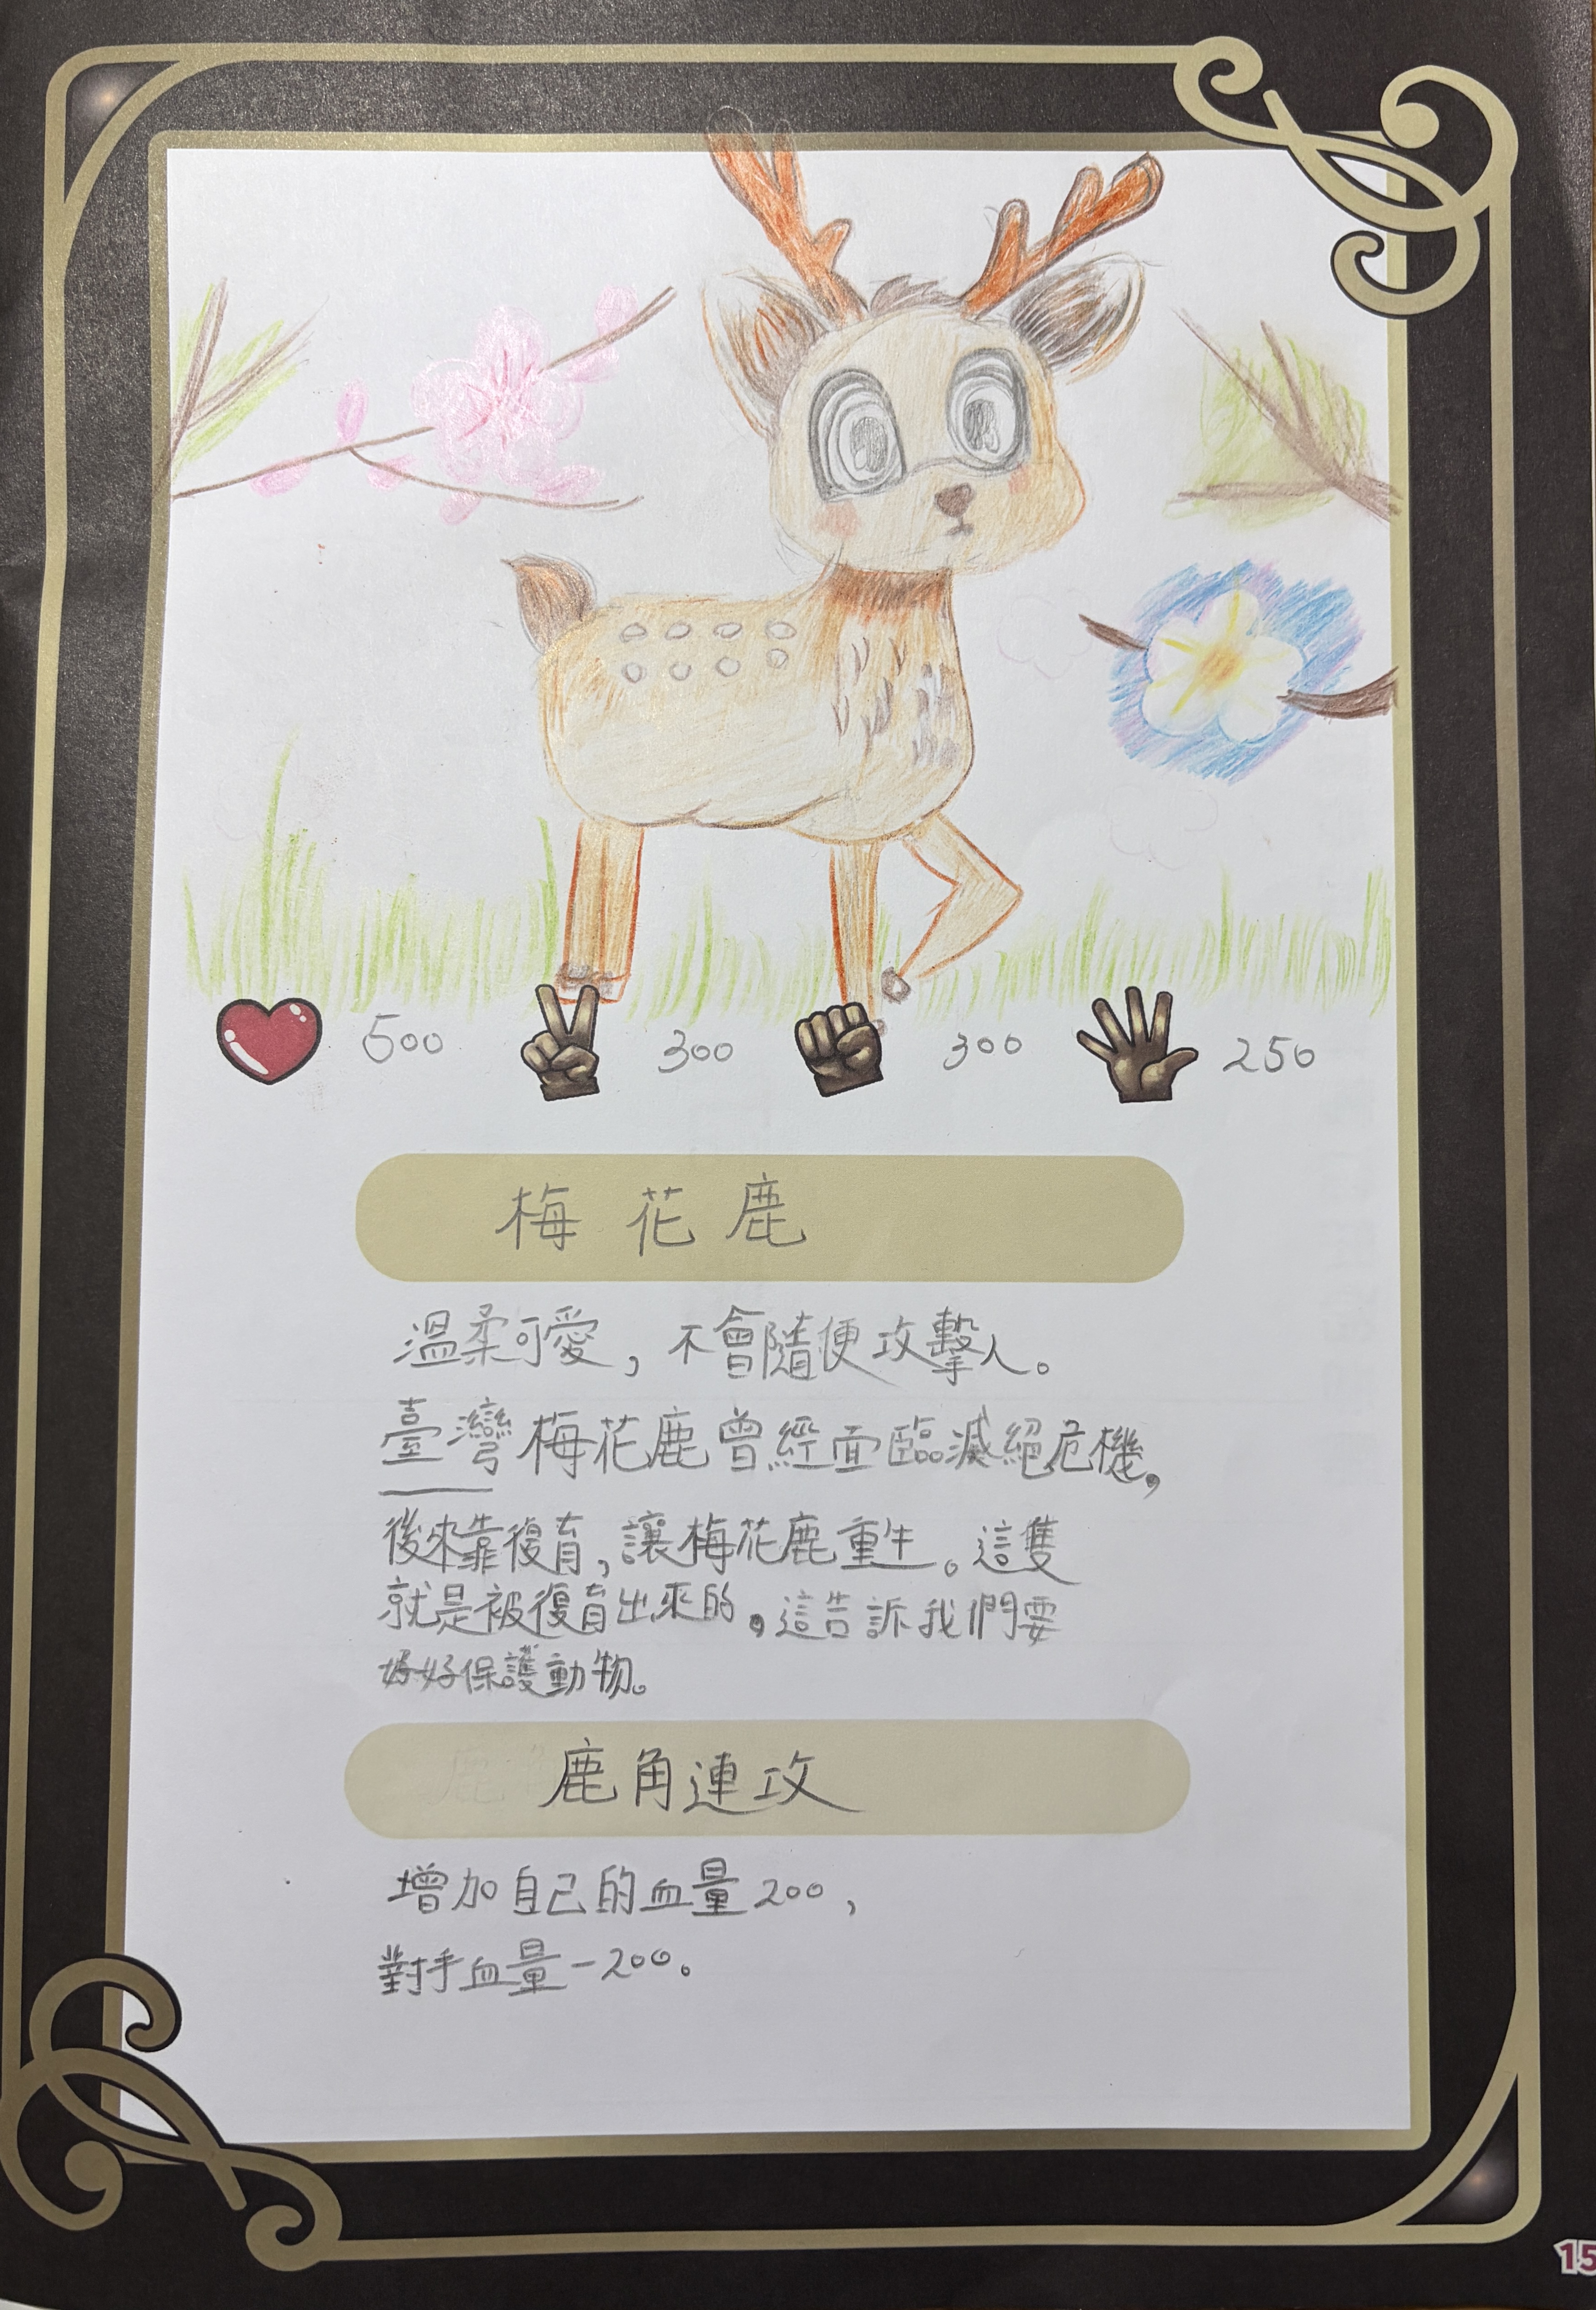 500 300 300 250
梅花鹿
溫柔可愛,不會隨便攻擊人。
臺灣梅花鹿曾經面臨滅絕危機,
後來靠復育,讓梅花鹿重生。這隻
就是被復育出來的,這告訴我們要
好好保護動物。
鹿角連攻
增加自己的血量200,
對手血量-200。
15